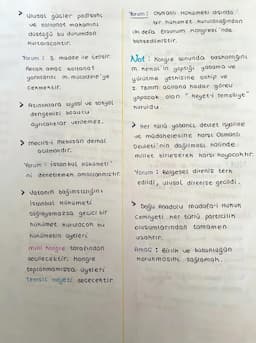 > Ulusal güçler padişahı
ve saltanat makamını
düştüğü bu durumdan
kurtaracaktır.
Yorum: 3. madde ile çelişir.
Fakat amaç saltanat
yanlılarını m. mücadele'ye
çekmektir.
> Azınlıklara siyasi ve sosyal
dengemizi bozucu
ayrıcalıklar verilemez.
> Meclis-i Mebusan derhal
açılmalıdır.
Yorum: İstanbul hükümeti'
ni denetlemek amaçlanmıştır.
> Vatanın bağımsızlığını
İstanbul hükümeti
sağlayamazsa geçici bir
hükümet kurulacak bu
hükümetin üyeleri
milli kongre tarafından
seçilecektir. Kongre
toplanmamışsa üyeleri
temsil heyeti seçecektir.
Yorum: Osmanlı Hükümeti dışında
bir hükümet kurulacağından
ilk defa Erzurum Kongresi'nde
bahsedilmiştir.
Not: Kongre sonunda başkanlığını
M. Kemal'in yaptığı yasama ve
yürütme yetkisine sahip ve
TBMM açılana kadar görev
yapacak olan "heyet-i temsiliye"
kuruldu
> Her türlü yabancı devlet işgaline
ve müdahalesine karşı Osmanlı
Devleti'nin dağılması halinde
millet birleşerek karşı koyacaktır.
Yorum: Bölgesel direniş terk
edildi, ulusal direnişe geçildi.
> Doğu Anadolu Müdafa-i Hukuk
Cemiyeti her türlü particilik
oluşumlarından tamamen
uzaktır.
Amaç: Birlik ve bütünlüğün
korunmasını sağlamak.